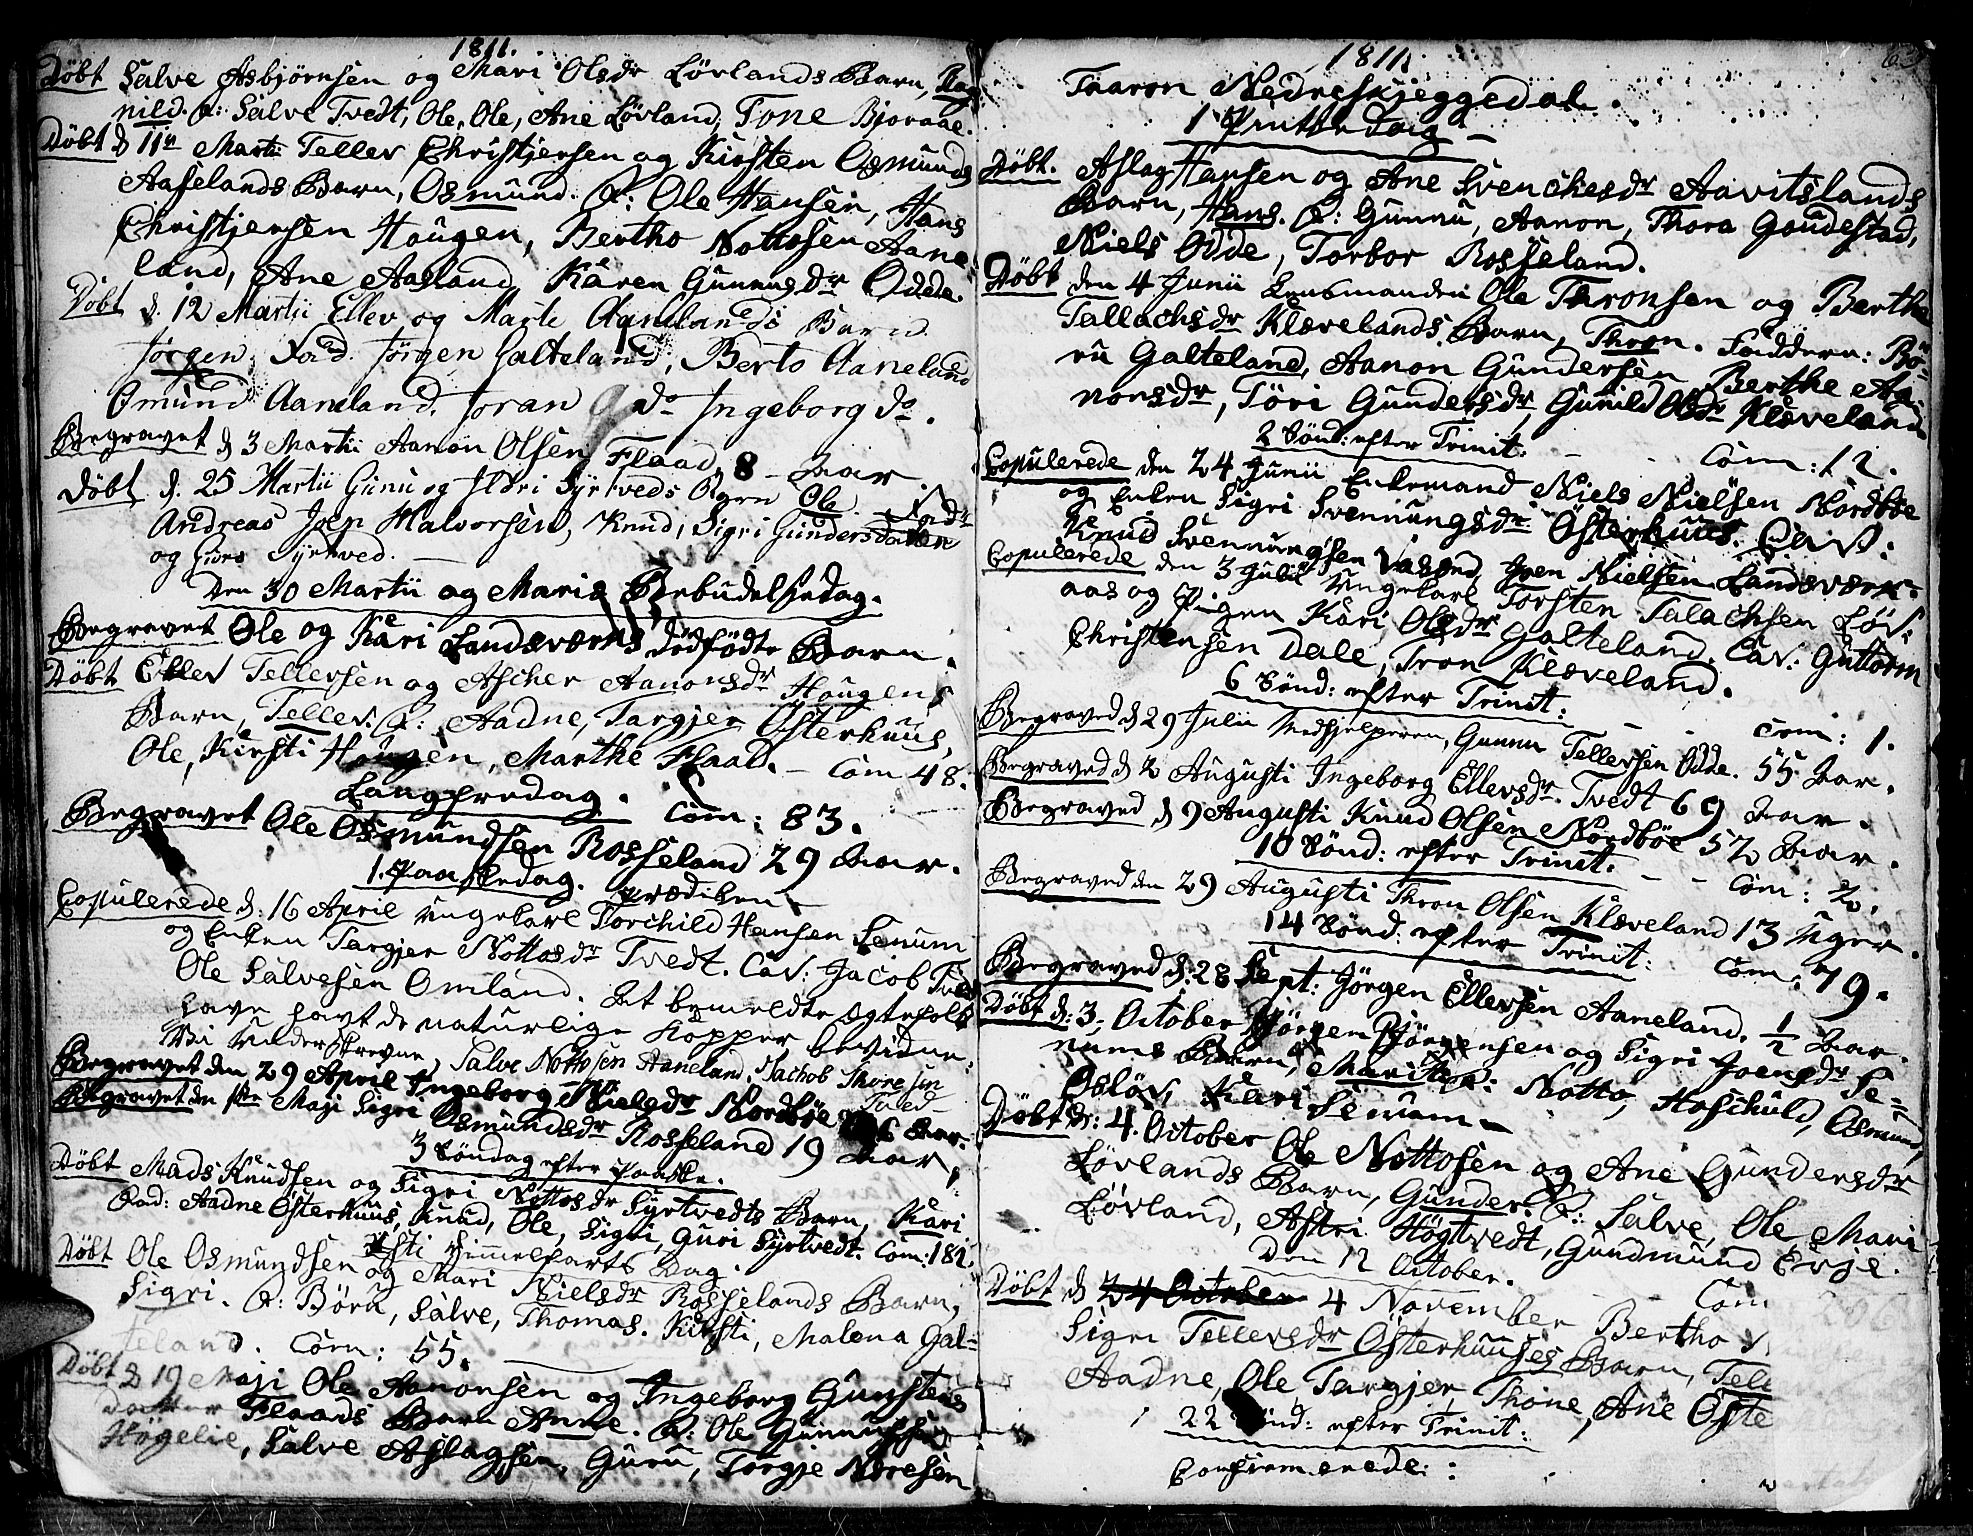 1811.
Döbt Salve Asbjörnsen og Mari Olsdr Lövlands Barn, Rag
nild. F: Salve Tvedt, Ole, Ole, Ane Lövland, Tone Bjoraae.
Döbt d 11te Martii Tellev Christjersen og Kirsten Osmunds
Aaselands Barn, Osmund. F: Ole Hansen, Hans
Christjersen Haugen, Bertho Nottosen Aane-
land, Ane Aasland, Kären Gunnusdr Odde.
Döbt d. 12 Martii Ellev og Marte Aanelands Barn
Jörgen. Fad. Jörgen Galteland, Berto Aaneland
Omund Aaneland, Joran do Ingeborg do.
Begravet d 3 Martii Aanon Olsen Flaad, 8 - Aar.
Döbt d. 25 Martii Gunu og Sigri Syrtveds Barn Ole. Fadr
Andreas Joen Halvorsen, Knud, Sigri Gundersdatter
og Syrtved.
Den 30 Martii og Mariæ Bebudelsedag.
Begravet Ole og Kari Landsværks dödfödte Barn.
Döbt Ellev Tellefsen og Ascher Aanonsdr Haugens
Barn, Tellev. F: Aadne, Targjer Österhuus,
Ole, Kirsti Haugen, Marthe Flaad. - Com 48.
Langfredag. Com: 83.
Begravet Ole Osmundsen Rosseland 29 Aar.
1. Paaskedag. Prædiken
Copulerede d: 16 April Ungekarl Torchild Hansen Senum
og Enken Targjer Nottosdr Tvedt. Cav: Jacob Tvedt
Ole Salvesen Omland. At bemeldte Egtefolk
have havt de naturlige Kopper bevidne
Vi Underskrevne, Salve Nottosen Aaneland, Jachob Thoresen
Tved
Begravet den 29 April Ingeborg Nielsdr Nordböe 6 Aar.
Begravet den 1ste Maji Sigri Osmundsdr Rosseland 19 Aar.
3 Söndag efter Paaske.
Döbt Mads Knudsen og Sigri Nottosdr Syrtvedts Barn, Kari
Fad: Aadne Österhuus, Knud, Ole, Sigri, Guri Syrtvedt. Com: 181.
Christi Himmelfarts Dag.
Döbt Ole Osmundsen og Mari Nielsdr Rosselands Barn,
Sigri. F: Böru, Salve, Thomas. Kirsti, Malena Gal-
teland. Com: 55.
Döbt d 19 Maji Ole Aanonsen og Ingeborg Gunsteens
Datter Flaads Barn Anne. F: Ole Gunnussen
Högelie, Salve Aslagsen, Guru, Torgje Noresen
1811.
Tharon Nedreskjeggedal.
1 Pintsedag -
Döbt. Aslag Hansen og Ane Svenchesdr Aavitslands
Barn, Hans. F: Gunnu, Aanon, Thora Gaudestad,
Niels Odde, Torbor Rosseland.
Döbt den 4 Junii Lensmanden Ole Thronsen og Berthe
Tallachsdr Klævelands Barn, Thron. Faddern: Bö-
ru Galteland, Aanon Gundersen, Berthe Aa-
nonsdr, Töri Gundersdr, Gunild Olsdr Klæveland
2 Sönd: efter Trinit: - - Com: 12.
Copulerede den 24 Junii Enkemand Niels Nielsen Nordböe
og Enken Sigri Svennungsdr Österhuus. Cav:
Knud Svennungsen Vasend, Joen Nielsen Landsværk.
Copulerede den 3 Julii Ungekarl Torsten Talachsen Löv-
aas og Pigen Kari Olsdr Galteland. Cav: Guttorm
Christensen Dale, Tron Klæveland.
6 Sönd: efter Trinit: - - Com: 1.
Begraved d 29 Julii Medhjelperen, Gunnu Tellevsen Odde. 55 Aar.
Begraved d 2 Augusti Ingeborg Ellevsdr. Tvedt 69 Aar.
Begraved d 9 Augusti Knud Olsen Nordböe 52 Aar.
10 Sönd: efter Trinit. - - Com: 2.
Begraved den 29 Augusti Thron Olsen Klæveland 13 Uger.
14 Sönd: efter Trinit: Com: 79.
Begraved d: 28 Sept: Jörgen Ellevsen Aaneland. 1/2 Aar.
Döbt d: 3. October Jörgen Jörgensen og Sigri Joensdr Se-
nums Barn, Marite. F: Notto, Hoschuld, Osmund,
Oslöv, Kari Senum.
Döbt d: 4. October Ole Nottosen og Ane Gundersdr
Lövlands Barn, Gunder. F: Salve, Ole, Mari
Lövland, Astri Högtvedt, Gundmund Evje.
Den 12 October. Com
Döbt d 24 October 4 November Bertho
Sigri Tellevsdr Österhuuses Barn, Tell
Aadne, Ole, Targjer, Thone, Ane Öste
22 Sönd: efter Trinit:
Confirmerede: